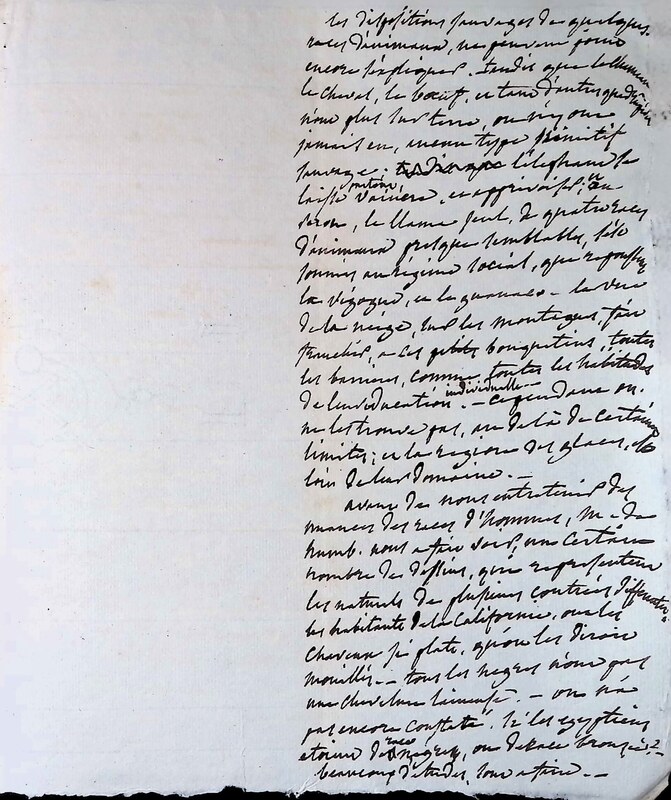 les dispositions sauvages de quelques
races d'animaux, ne peuvent point
encore s'expliquer. tandis que le chameau
le cheval, le bœuf, et tant d'autres
n'ont plus sur terre, ou n'y ont
jamais eu, aucun type primitif
sauvage. l'éléphant se
laisse vaincre, et apprivoiser; 
le llama seul, de quatre races
d'animaux presque semblables, s'est
soumis au régime social, que repousse
la vigogne, et le guanaco - la vue
de la neige, sur les montagnes, fait
franchir, a ces petits bouquetins, toutes
les barrieres, comme toutes les habitudes
de leur éducation individuelle. - cependant on
ne les trouve pas, au delà de certaines
limites; et la region des glaces, est
loin de leur domaine. -
avant de nous entretenir des
nuances des races d'hommes, M. de
humb. nous a fait voir, un certain
nombre de dessins, qui représentent
les naturels de plusieurs contrées différentes.
les habitants de la Californie, ont les
cheveux si plats, qu'on les diroit
mouillés. - tous les negres n'ont pas
une chevelure laineuse. - on n'a
pas encore constaté, si les egyptiens
etoient de race negre, ou de race bronzée? -
beaucoup d'etudes, sont a faire. -